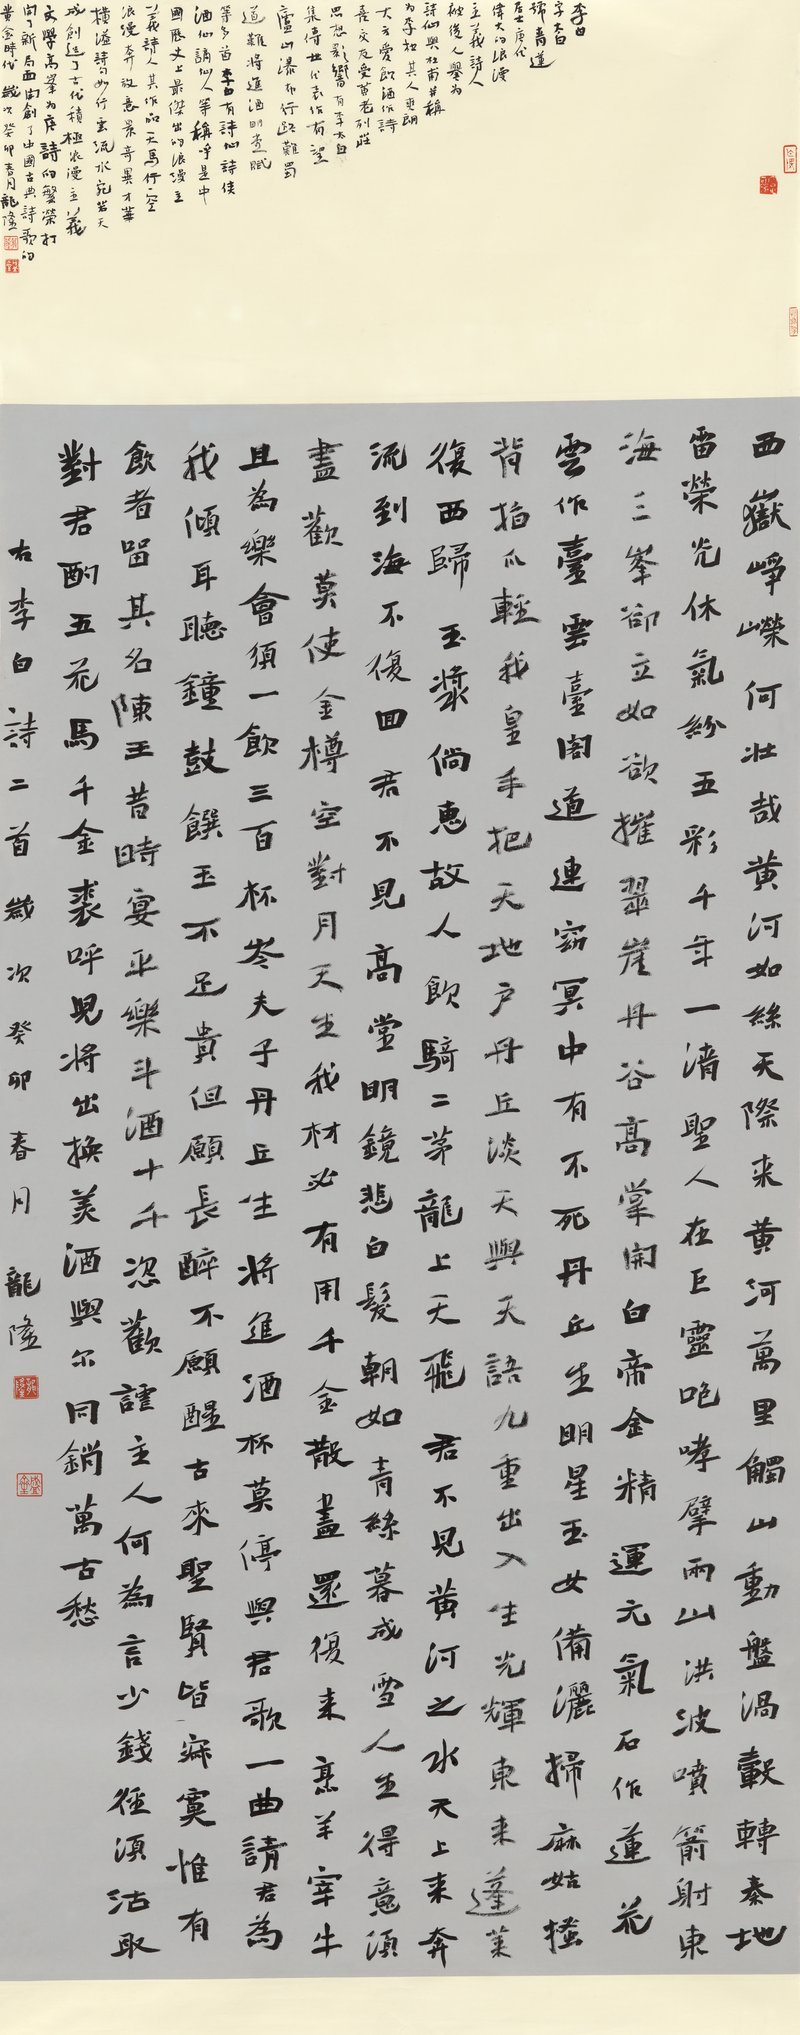 李白
字太白
號青蓮
居士唐代
偉大的浪漫
主義詩人
被後人譽為
詩仙與杜甫並稱
為李杜其人爽朗
大方愛飲酒作詩
喜交友受黃老列莊
思想影響有李太白
集傳世代表作有望
廬山瀑布行路難蜀
道難將進酒明堂賦
等多首李白有詩仙詩俠
酒仙謫仙人等稱呼是中
國歷史上最傑出的浪漫主
義詩人其作品天馬行空
浪漫奔放意景奇異才華
橫溢詩句如行雲流水宛若天
成創造了古代積極浪漫主義
文學高峯為唐詩的繁榮打
開了新局面開創了中國古典詩歌的
黃金時代 歲次癸卯春月龍隆
西嶽崢嶸何壯哉黃河如絲天際來黃河萬里觸山動盤渦轂轉秦地
雷榮光休氣紛五彩千年一清聖人在巨靈咆哮擘兩山洪波噴箭射東
海三峯卻立如欲摧翠崖丹谷高掌開白帝金精運元氣石作蓮花
雲作臺雲臺閣道連窈冥中有不死丹丘生明星玉女備灑掃麻姑搔
背指爪輕我皇手把天地户丹丘談天與天語九重出入生光輝東來蓬萊
復西歸玉漿倘惠故人飲騎二茅龍上天飛 君不見黃河之水天上來奔
流到海不復回君不見高堂明鏡悲白髮朝如青絲暮成雪人生得意須
盡歡莫使金樽空對月天生我材必有用千金散盡還復來烹羊宰牛
且為樂會須一飲三百杯岑夫子丹丘生將進酒杯莫停與君歌一曲請君為
我傾耳聽鐘鼓饌玉不足貴但願長醉不願醒古來聖賢皆寂寞惟有
飲者留其名陳王昔時宴平樂斗酒十千恣歡謔主人何為言少錢徑須沽取
對君酌五花馬千金裘呼兒將出換美酒與爾同銷萬古愁
右李白詩二首歲次癸卯春月 龍隆